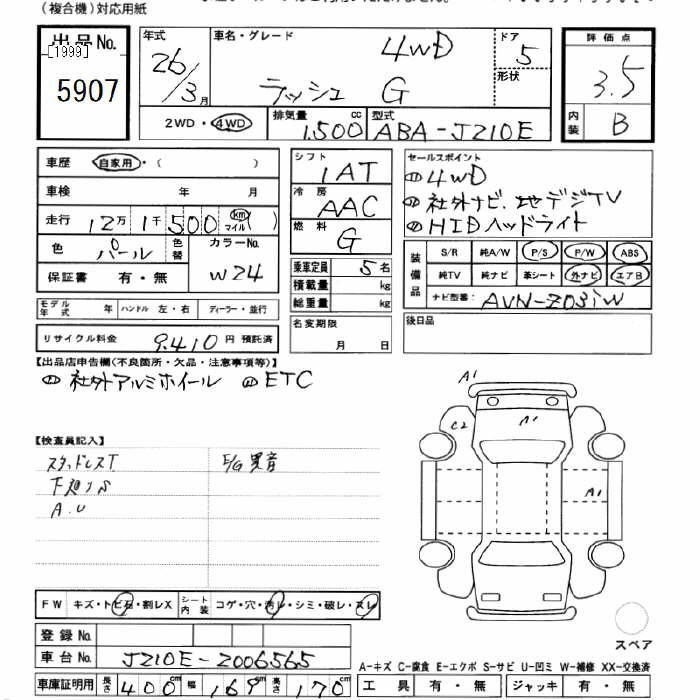 (複合機)対応用紙
出品No. [1999] 5907
年式 26/3月
車名・グレード 4WD ラッシュ G
ドア 5
形状
評価点 3.5
内装 B
2WD・4WD 排気量 1500cc 型式 ABA-J210E
車歴 自家用・( )
車検 年 月
走行 12万1千500 km マイル( )
色 パール 色替 カラーNo. W24
保証書 有・無
モデル年式 年 ハンドル 左・右 ディーラー・並行
リサイクル料金 9,410円 預託済
シフト IAT
冷房 AAC
燃料 G
乗車定員 5名
積載量 kg
総重量 kg
名変期限 月 日
セールスポイント
4WD
社外ナビ.地デジTV
HIDヘッドライト
装備品 S/R 純A/W P/S P/W ABS
純TV 純ナビ 革シート 外ナビ エアB
ナビ型番: AVN-Z03iW
後日品
【出品店申告欄(不良箇所・欠品・注意事項等)】
社外アルミホイール ETC
【検査員記入】
スタッドレスT E/G異音
下廻りS
A.U
A1
C2 A1
A1
スペア
FW キズ・トビ石・割レX シート内装 コゲ・穴・汚レ・シミ・破レ・スレ
登録No.
車台No. J210E-2006565
車庫証明用 長さ 400cm 幅 169cm 高さ 170cm
A-キズ C-腐食 E-エクボ S-サビ U-凹ミ W-補修 XX-交換済
工具 有・無 ジャッキ 有・無